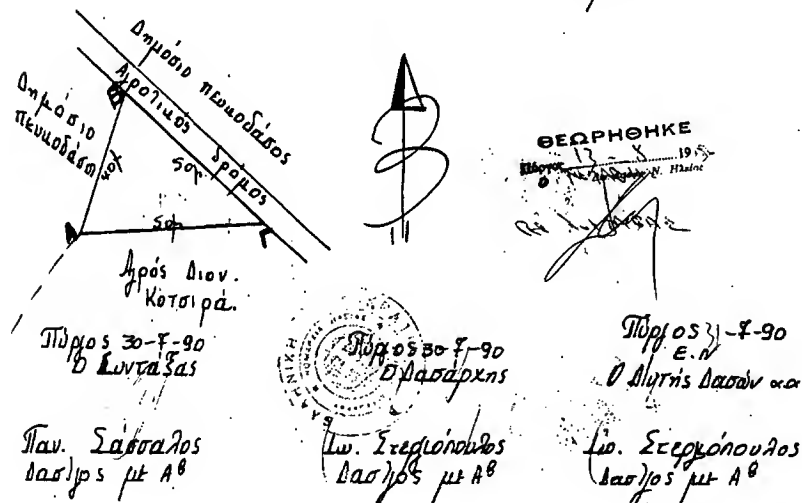 Δημόσιο πευκοδάσος
Αγροτικός δρόμος
Δημόσιο
πευκοδάσος
50μ
50μ
Αγρός Διον.
Κοτσιρά.
ΘΕΩΡΗΘΗΚΕ
Πύργος 13 - 8 19
Ο
Ν. Ηλείας
Πύργος 30-7-90
Ο Συντάξας
Παν. Σάσσαλος
Δασ/γος με Αβ
ΕΛΛΗΝΙΚΗ
Πύργος 30-7-90
Ο Δασάρχης
Ιω. Στεργιόπουλος
Δασ/γος με Αβ
Πύργος 31-7-90
Ε.Ν
Ο Δ/ντής Δασών α.α
Ιω. Στεργιόπουλος
Δασ/γος με Αβ